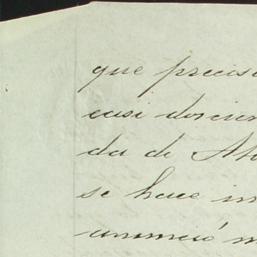 que precis
casi doscien
da de Ah
se hace in
anunció m